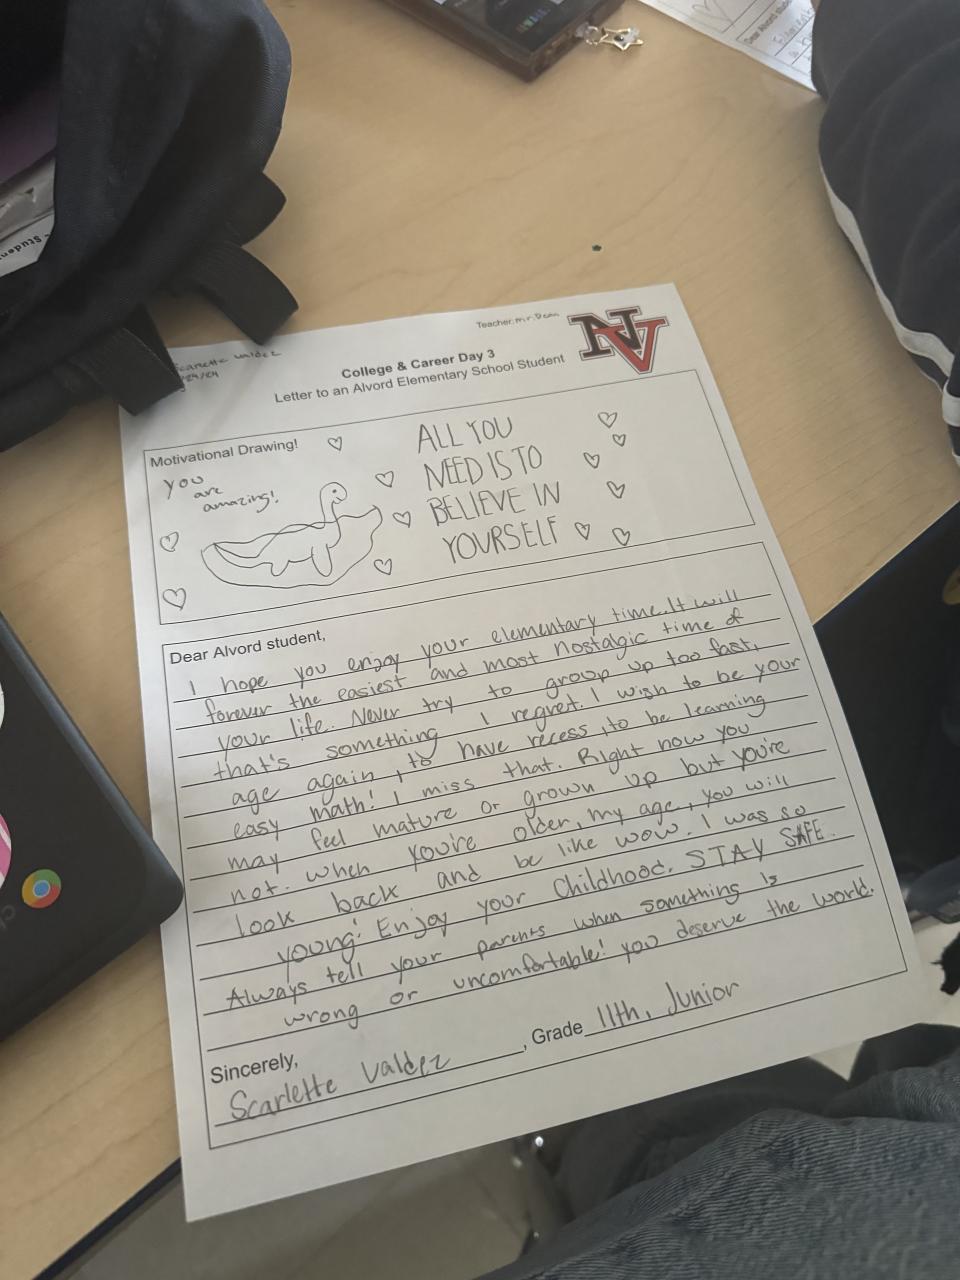 Studen
Dear Alvord stud
Teacher: Mr. Dean
NV
Scarlette Valdez
College & Career Day 3
Letter to an Alvord Elementary School Student
Motivational Drawing!
you
are
amazing!
ALL YOU
NEED IS TO
BELIEVE IN
YOURSELF
Dear Alvord student,
I hope you enjoy your elementary time. It will
forever the easiest and most nostalgic time of
your life. Never try to groop up too fast,
that's something I regret. I wish to be your
age again, to have recess, to be learning
easy math! I miss that. Right now you
may feel mature or grown up but you're
not. When you're older, my age, you will
look back and be like wow. I was so
young! Enjoy your Childhood. STAY SAFE.
Always tell your parents when something is
wrong or uncomfortable! you deserve the world.
Sincerely,
Scarlette Valdez, Grade 11th, Junior